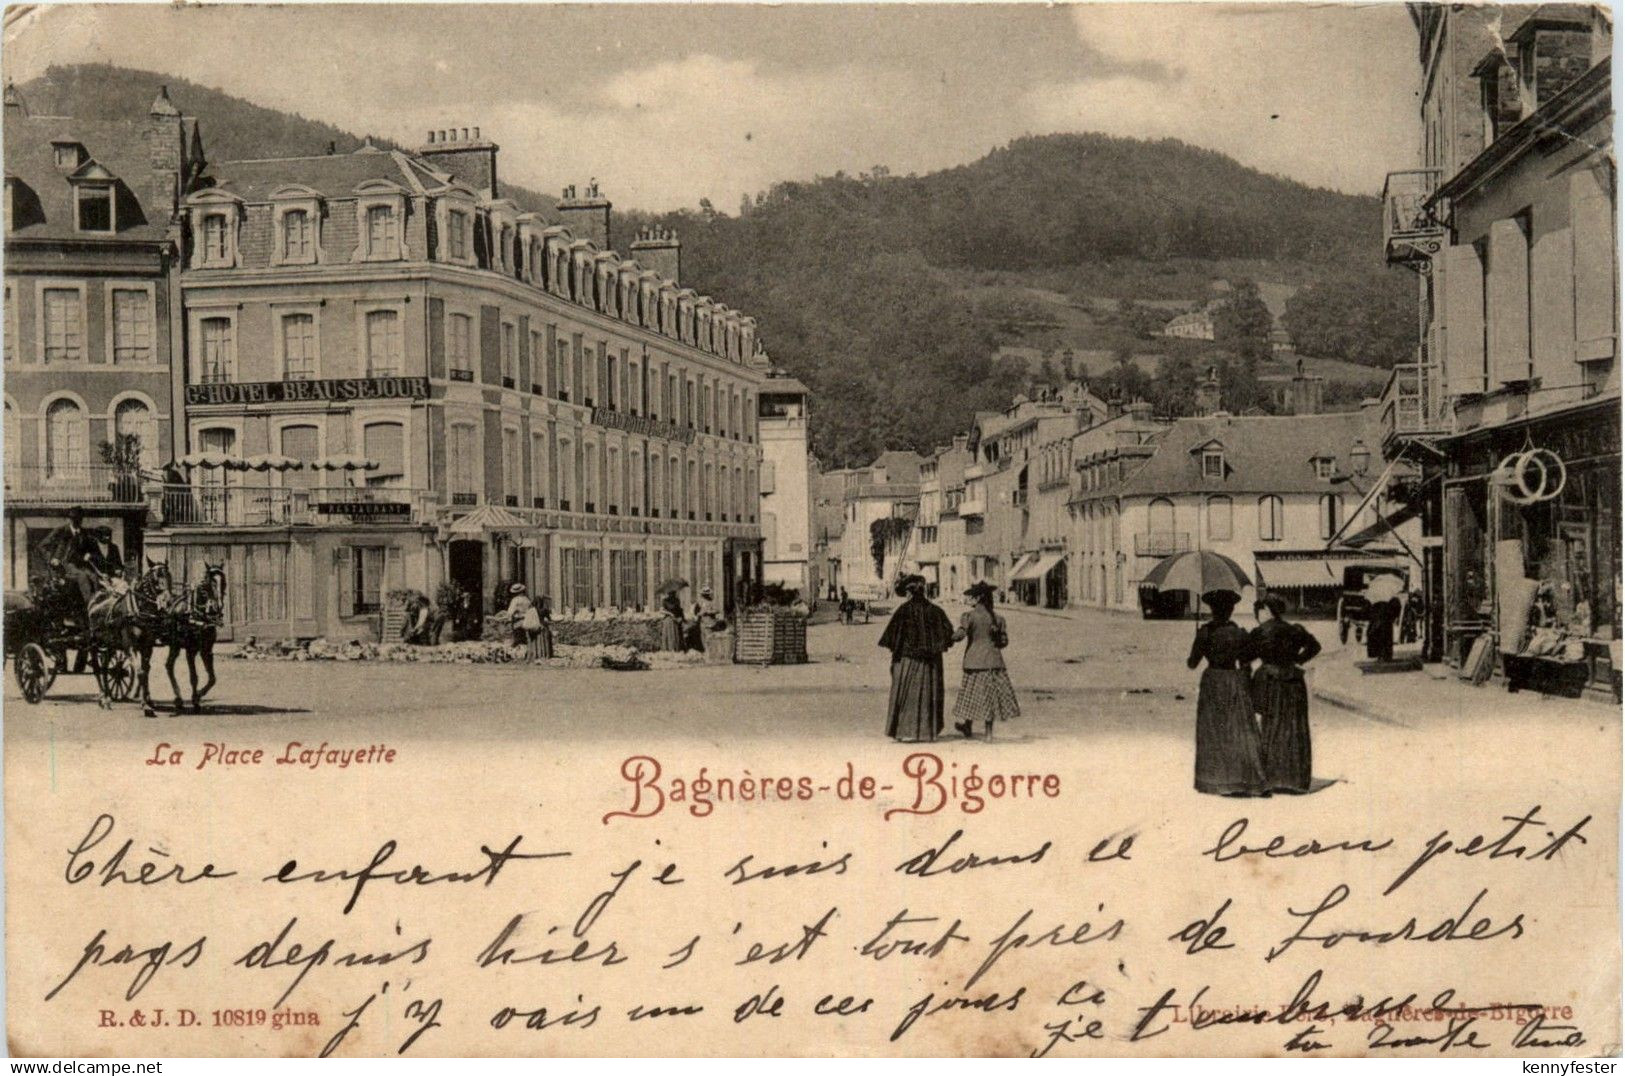 Gd HOTEL BEAU-SEJOUR
RESTAURANT
La Place Lafayette
Bagnères-de-Bigorre
Chère enfant je suis dans ce beau petit
pays depuis hier s'est tout près de Lourdes
j'y vais un de ces jours ci
je t'embrasse
ta
R. & J. D. 10819 gina
Librairie Bagnères-de-Bigorre
kennyfester